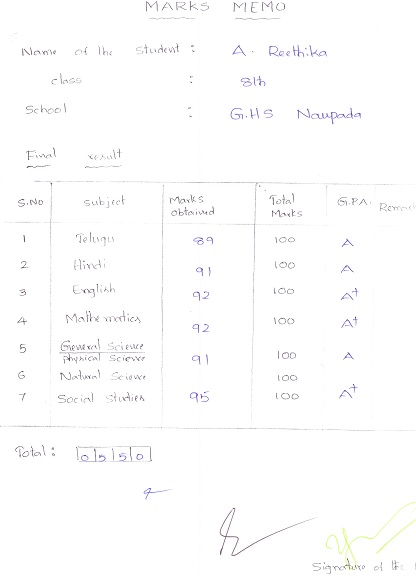 MARKS MEMO
Name of the Student : A. Reethika
class : 8th
School : G.HS Naupada
Final result
S.No Subject Marks obtained Total Marks G.P.A. Remar
1 Telugu 89 100 A
2 Hindi 91 100 A
3 English 92 100 A+
4 Mathematics 92 100 A+
5 General Science / Physical Science 91 100 A
6 Natural Science 100
7 Social Studies 95 100 A+
Total : 0550
Signature of the